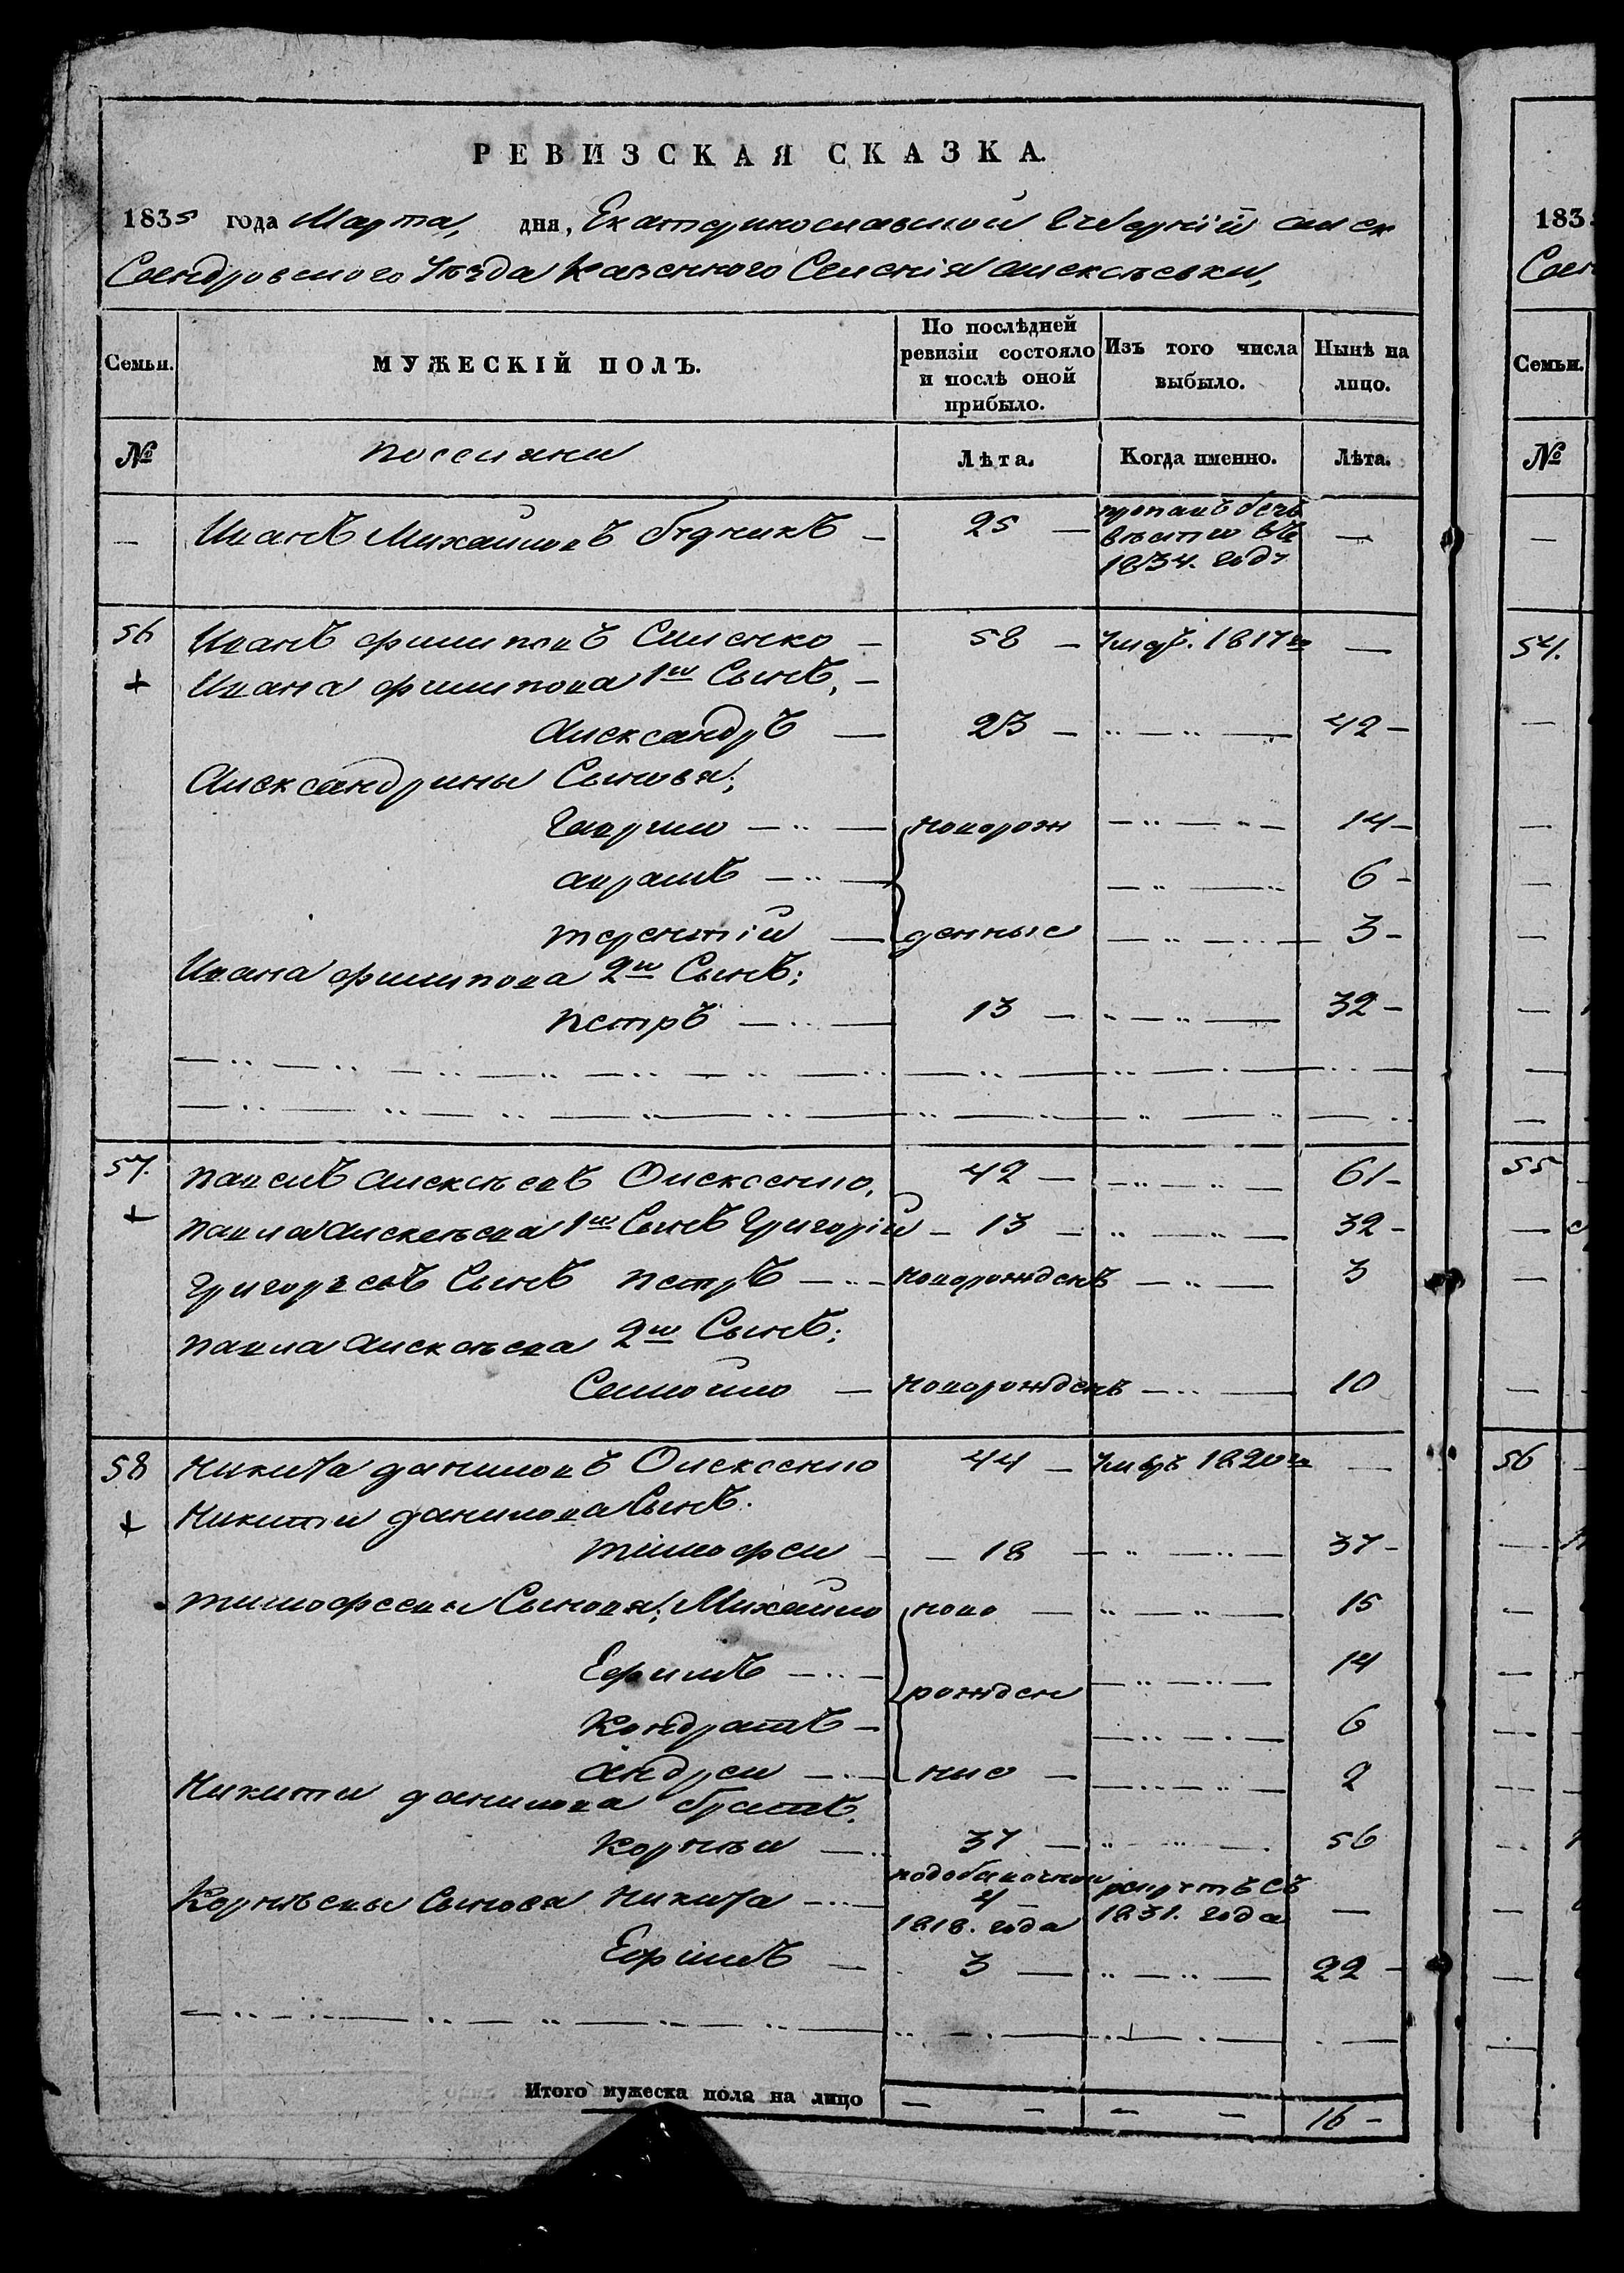 РЕВИЗСКАЯ СКАЗКА.
1835 года Марта, дня, Екатеринославской Губерніи Алек
сандровского Уезда Казенного Селенія Алексѣевки,
Семьи.
МУЖЕСКІЙ ПОЛЪ.
По послѣдней ревизіи состояло и послѣ оной прибыло.
Изъ того числа выбыло.
Нынѣ на лицо.
№
поселяни
Лѣта.
Когда именно.
Лѣта.
— Иванъ Михайловъ — 25 — пропалъ безъ вѣсти въ 1834. году —
56 Иванъ Филиповъ — 58 — умеръ. 1817го —
+ Ивана Филипова 1й Сынъ, —
Александръ — 23 — 42 —
Александрины Сыновя;
Гаврило — новорож 14 —
аврамъ — 6 —
терентій — денные 3 —
Ивана Филипова 2й Сынъ;
Петръ — 13 — 32 —
57. Павелъ Алексѣевъ Олексенко, 42 — 61 —
+ Павла Алексѣева 1й Сынъ Григорій — 13 — 32 —
Григорьевъ Сынъ Петръ — новорожденъ — 3
Павла Алексѣева 2й Сынъ;
Самойло — новорожденъ — 10
58 Никита Даниловъ Олексенко 44 — умеръ 1820го —
+ Никиты Данилова Сынъ.
тимофеи — 18 — 37 —
тимофеевы Сыновя; Михайло ново — 15
Ефимъ — рожден 14
Кондратъ — 6
Андреи — ные — 2
Никиты Данилова братъ,
Корнѣи — 37 — 56
Корнѣевы Сыновя Никита — 4 1818. года 1831. года —
Ефімъ — 3 — 22 —
Итого мужеска пола на лицо — — — — 16 —
183
Семьи.
№
54.
55
56